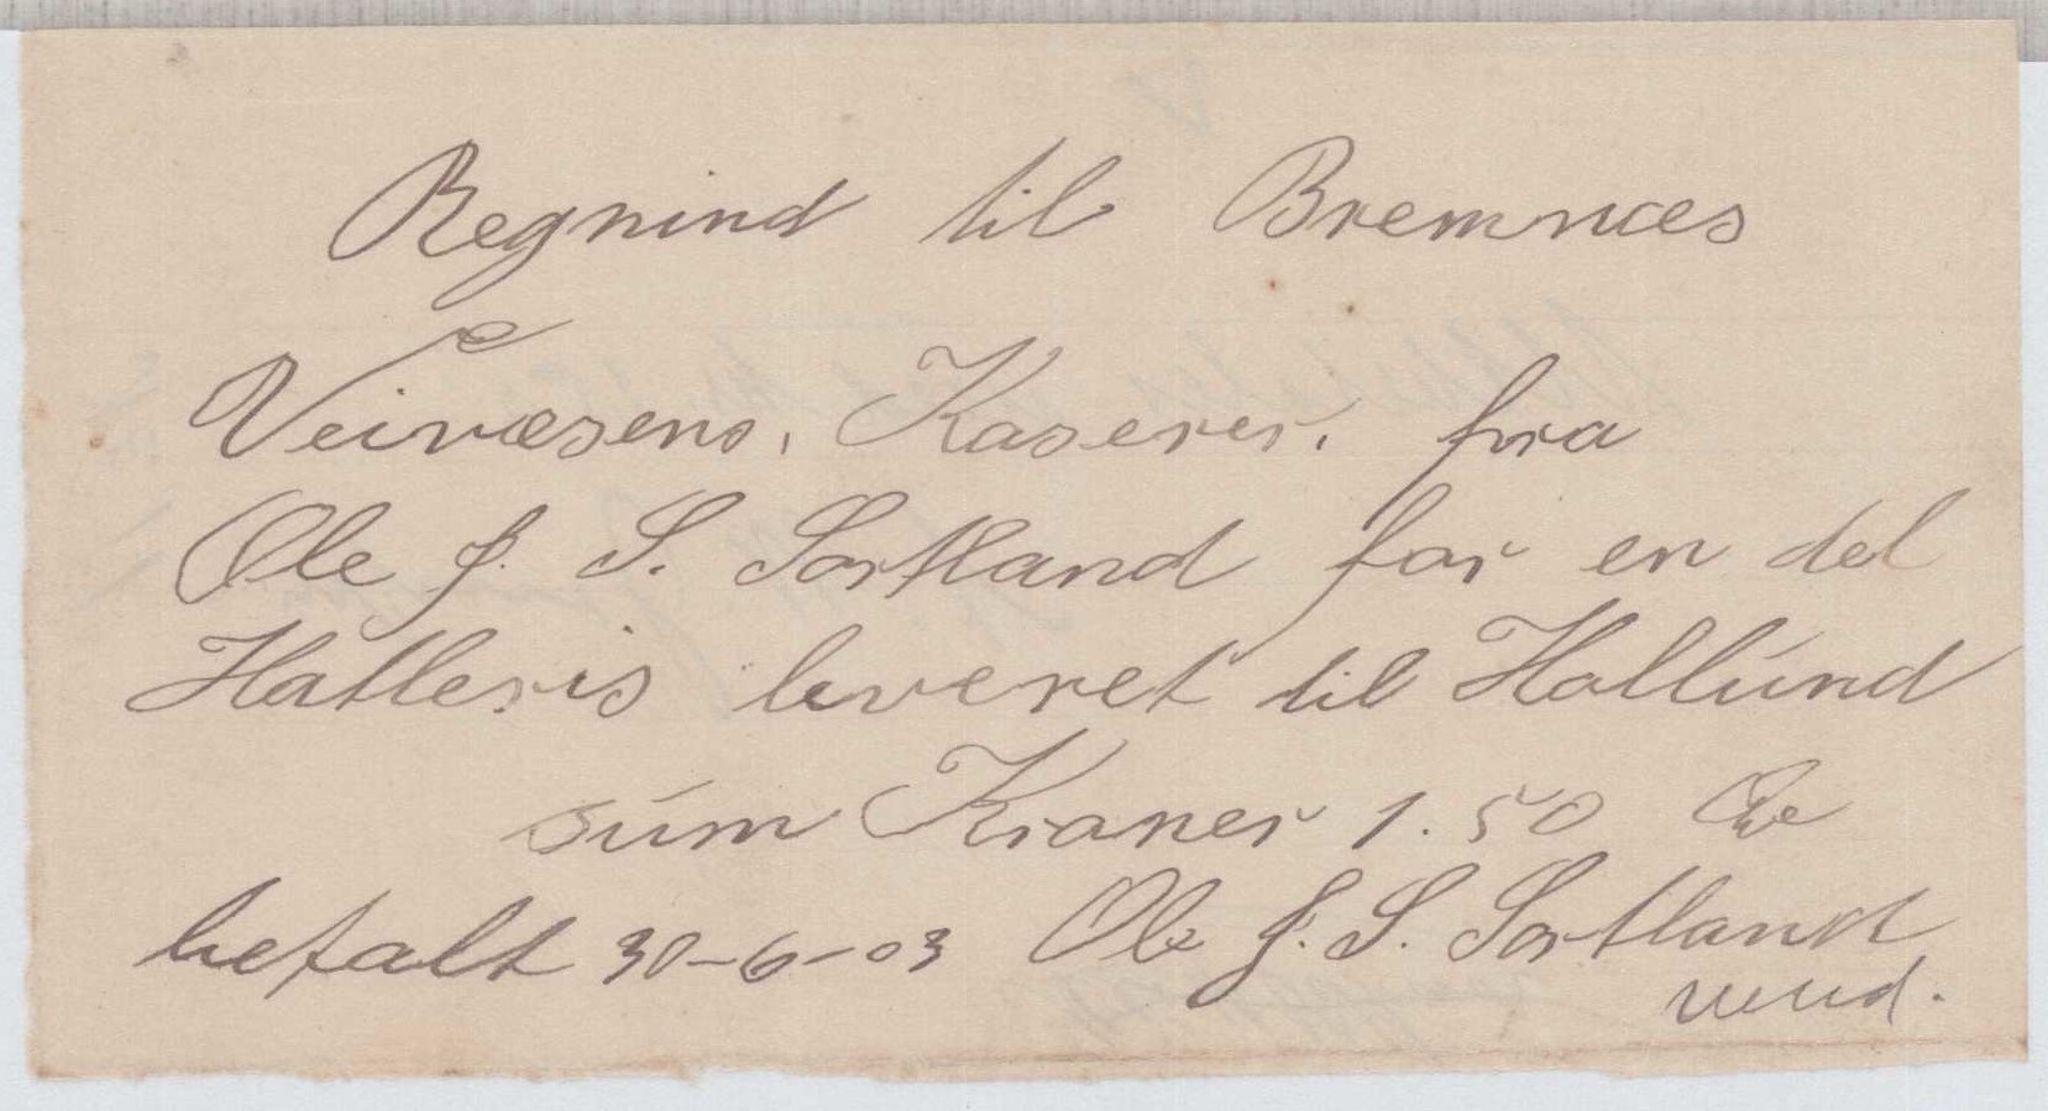 Regnind til Bremnæs
Veivæsens, Kaserer, fra
Ole J. S. Sortland for en del
Hatleris leveret til Hollund
súm Kroner 1.50 Øre
betalt 30-6-03 Ole J. S. Sortland